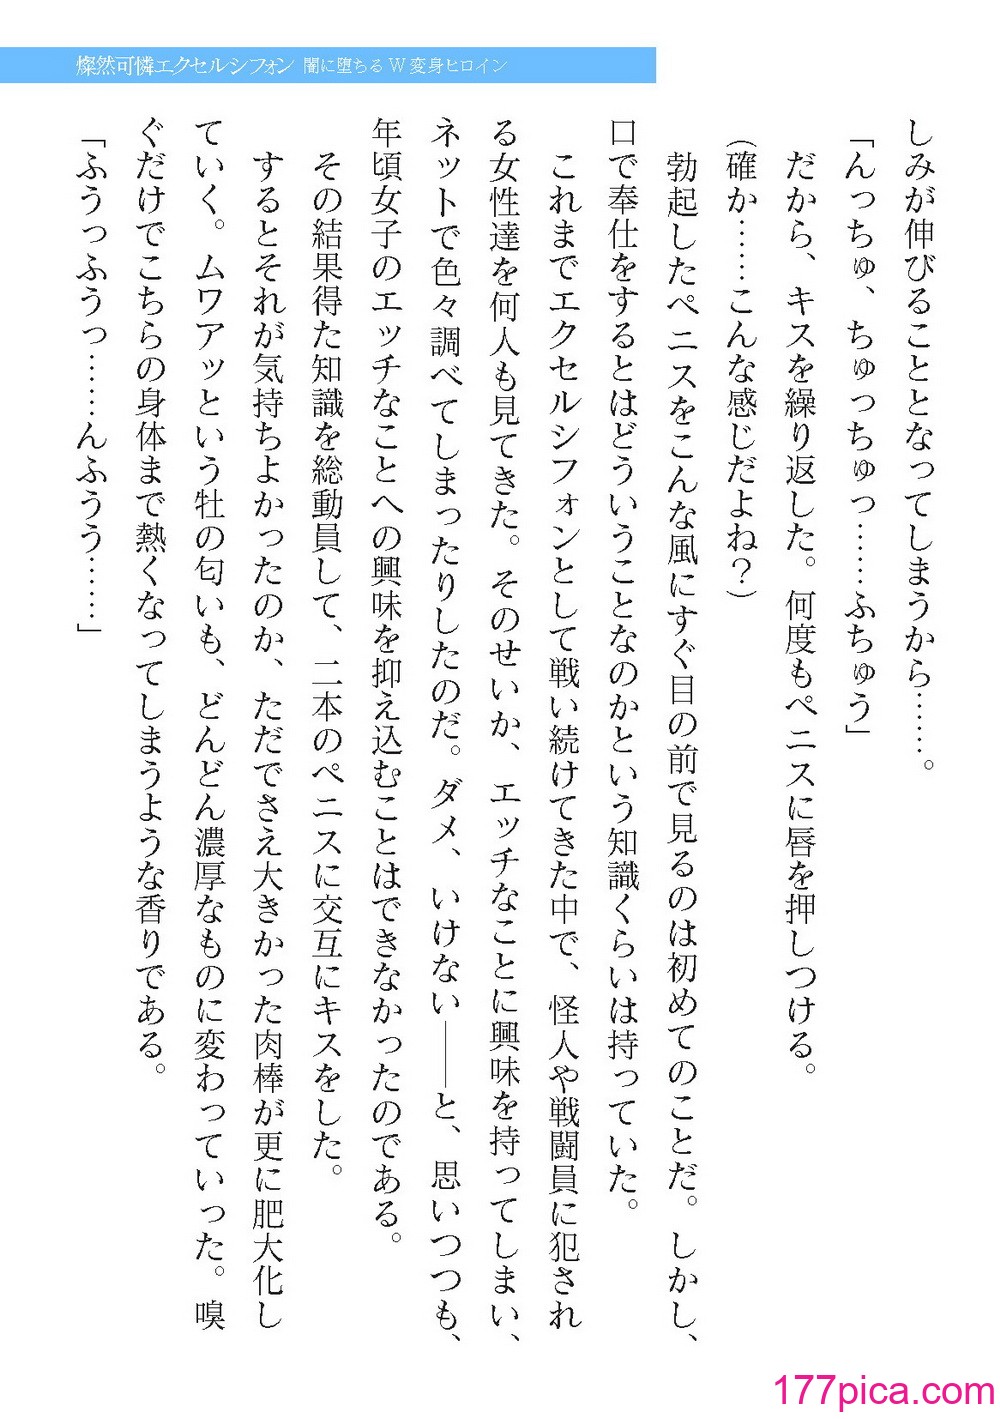 燦然可憐エクセルシフォン 闇に堕ちるW変身ヒロイン
しみが伸びることとなってしまうから……。
「んっちゅ、ちゅっちゅっ……ふちゅう」
だから、キスを繰り返した。何度もペニスに唇を押しつける。
(確か……こんな感じだよね?)
勃起したペニスをこんな風にすぐ目の前で見るのは初めてのことだ。しかし、
口で奉仕をするとはどういうことなのかという知識くらいは持っていた。
これまでエクセルシフォンとして戦い続けてきた中で、怪人や戦闘員に犯され
る女性達を何人も見てきた。そのせいか、エッチなことに興味を持ってしまい、
ネットで色々調べてしまったりしたのだ。ダメ、いけない――と、思いつつも、
年頃女子のエッチなことへの興味を抑え込むことはできなかったのである。
その結果得た知識を総動員して、二本のペニスに交互にキスをした。
するとそれが気持ちよかったのか、ただでさえ大きかった肉棒が更に肥大化し
ていく。ムワアッという牡の匂いも、どんどん濃厚なものに変わっていった。嗅
ぐだけでこちらの身体まで熱くなってしまうような香りである。
「ふうっふうっ……んふうう……」
177pica.com